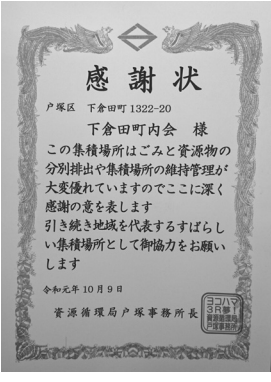 感謝状
戸塚区　下倉田町1322-20
下倉田町内会　様
この集積場所はごみと資源物の
分別排出や集積場所の維持管理が
大変優れていますのでここに深く
感謝の意を表します
引き続き地域を代表するすばらし
い集積場所として御協力をお願い
します
令和元年10月9日
資源循環局戸塚事務所長
ヨコハマ
3R夢!
資源循環局
戸塚事務所